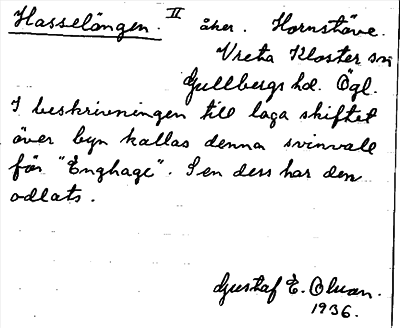 Hasselängen. II åker. Hornstäve.
Vreta Kloster sn
Gullbergs hd. Ögl.
I beskrivningen till laga skiftet
över byn kallas denna svinvall
för "Enghage". Sen dess har den
odlats.
Gustaf E. Olsson.
1936.